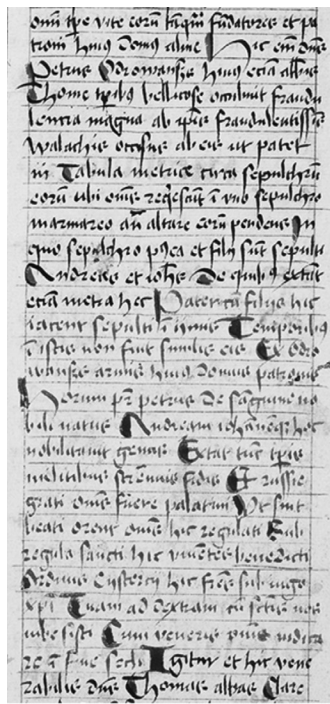 om̄i tp̄e vite eorū tāq̄m fūdatores et pa
troni huius domus alme Hic em̄ dn̄s
Petrus Odrowansz huius eciā abb̄is
Thome tp̄ribus bellicose occubuit fraudu
lencia magna ab ip̄is fraudulentissīs
walachis occisus ab eis ut patet
in Tabula metrice circa sepulchrū
eorū ubi om̄es reqͥescūt ī vno sepulchro
marmareo an̄ altare eorū pendens In
quo sepulchro p9ea et filij sūt sepulti
Andreas et ioh̄es De quibus extāt
eciā metra hec Pater cū filijs hic
iacent sepulti ī simul Temporibus
ī istis non fuit similis eis Ex odro
wansz armis huius domus patronus
Horum pr̄ petrus de sangwine no
bili natus Andream iohānemqꝫ hoc
nobilitauit genus Extat tūc tp̄is
militibus strennuis fidis Et russie
grati om̄es fuere palatini Ut sint
beati orent om̄es hic regulati Sub
regula sancti hic viuentes benedicti
Ordinis Cystercij hic fr̄es sub iugo
xp̄i Tuam ad dextram cū sc̄tis nos
iube sisti Cum veneris om̄s iudica
re ī fine secli Igitur et hic vene
rabilis dn̄s Thomas abbas Clare